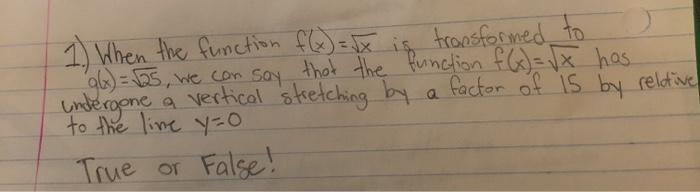 1.) When the function f(x)=√x is transformed to
g(x)=√25, we can say that the function f(x)=√x has
undergone a vertical stretching by a factor of 15 by relative
to the line y=0
True or False!